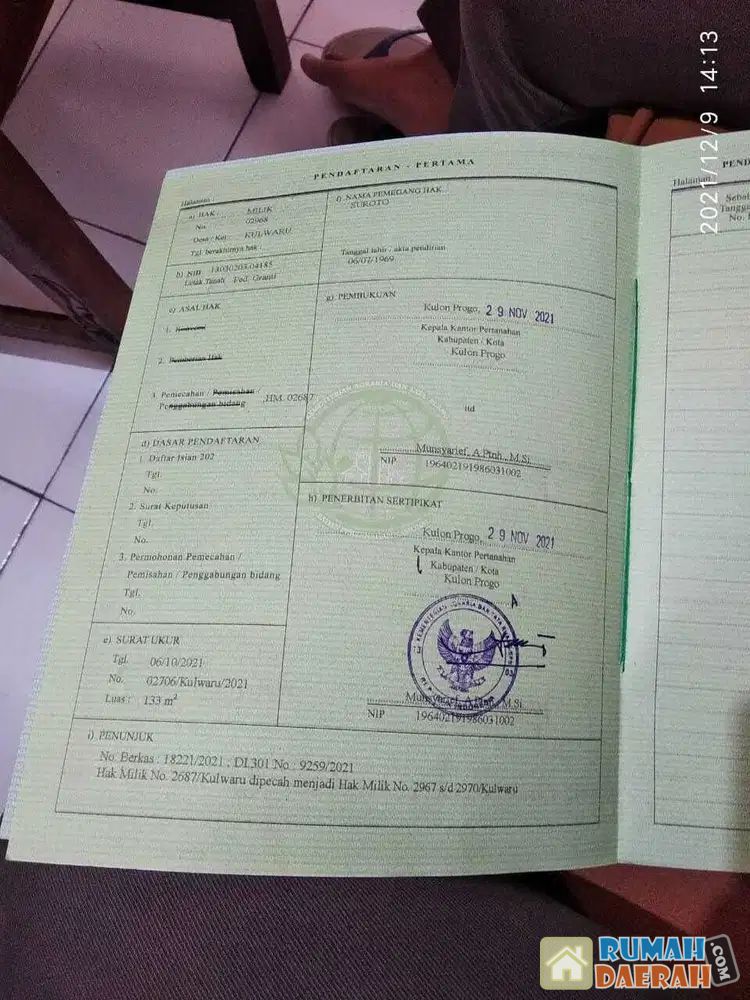 2021/12/9 14:13
PENDAFTARAN - PERTAMA
Halaman
a) HAK : MILIK
No. 02968
Desa / Kel : KULWARU
Tgl. berakhirnya hak :
b) NIB 13030203.04185
Letak Tanah Ped. Granti
c) ASAL HAK
1. Konversi
2. Pemberian Hak
3. Pemecahan / Pemisahan /
Penggabungan bidang ,HM. 02687
d) DASAR PENDAFTARAN
1. Daftar Isian 202
Tgl.
No.
2. Surat Keputusan
Tgl.
No.
3. Permohonan Pemecahan /
Pemisahan / Penggabungan bidang
Tgl.
No.
e) SURAT UKUR
Tgl. 06/10/2021
No. 02706/Kulwaru/2021
Luas : 133 m²
f) NAMA PEMEGANG HAK
SUROTO
Tanggal lahir / akta pendirian
06/07/1969
g) PEMBUKUAN
Kulon Progo, 29 NOV 2021
Kepala Kantor Pertanahan
Kabupaten / Kota
Kulon Progo
ttd
Munsyarief, A.Ptnh., M.Si.
NIP 196402191986031002
h) PENERBITAN SERTIPIKAT
Kulon Progo, 29 NOV 2021
Kepala Kantor Pertanahan
Kabupaten / Kota
Kulon Progo
Munsyarief, A.Ptnh., M.Si.
NIP 196402191986031002
i) PENUNJUK
No. Berkas : 18221/2021 , DI.301 No : 9259/2021
Hak Milik No. 2687/Kulwaru dipecah menjadi Hak Milik No. 2967 s/d 2970/Kulwaru
PEND
Halaman
Sebab
Tangga
No.
RUMAH
DAERAH.COM